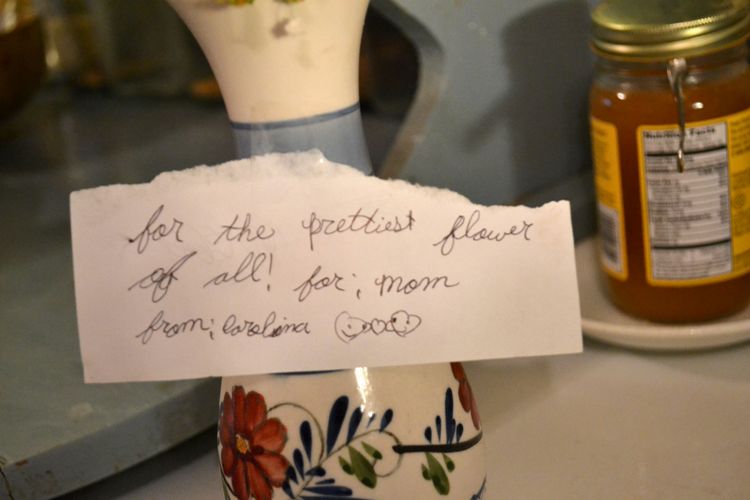 for the prettiest flower
of all! for; mom
from; Carolina
Nutrition Facts